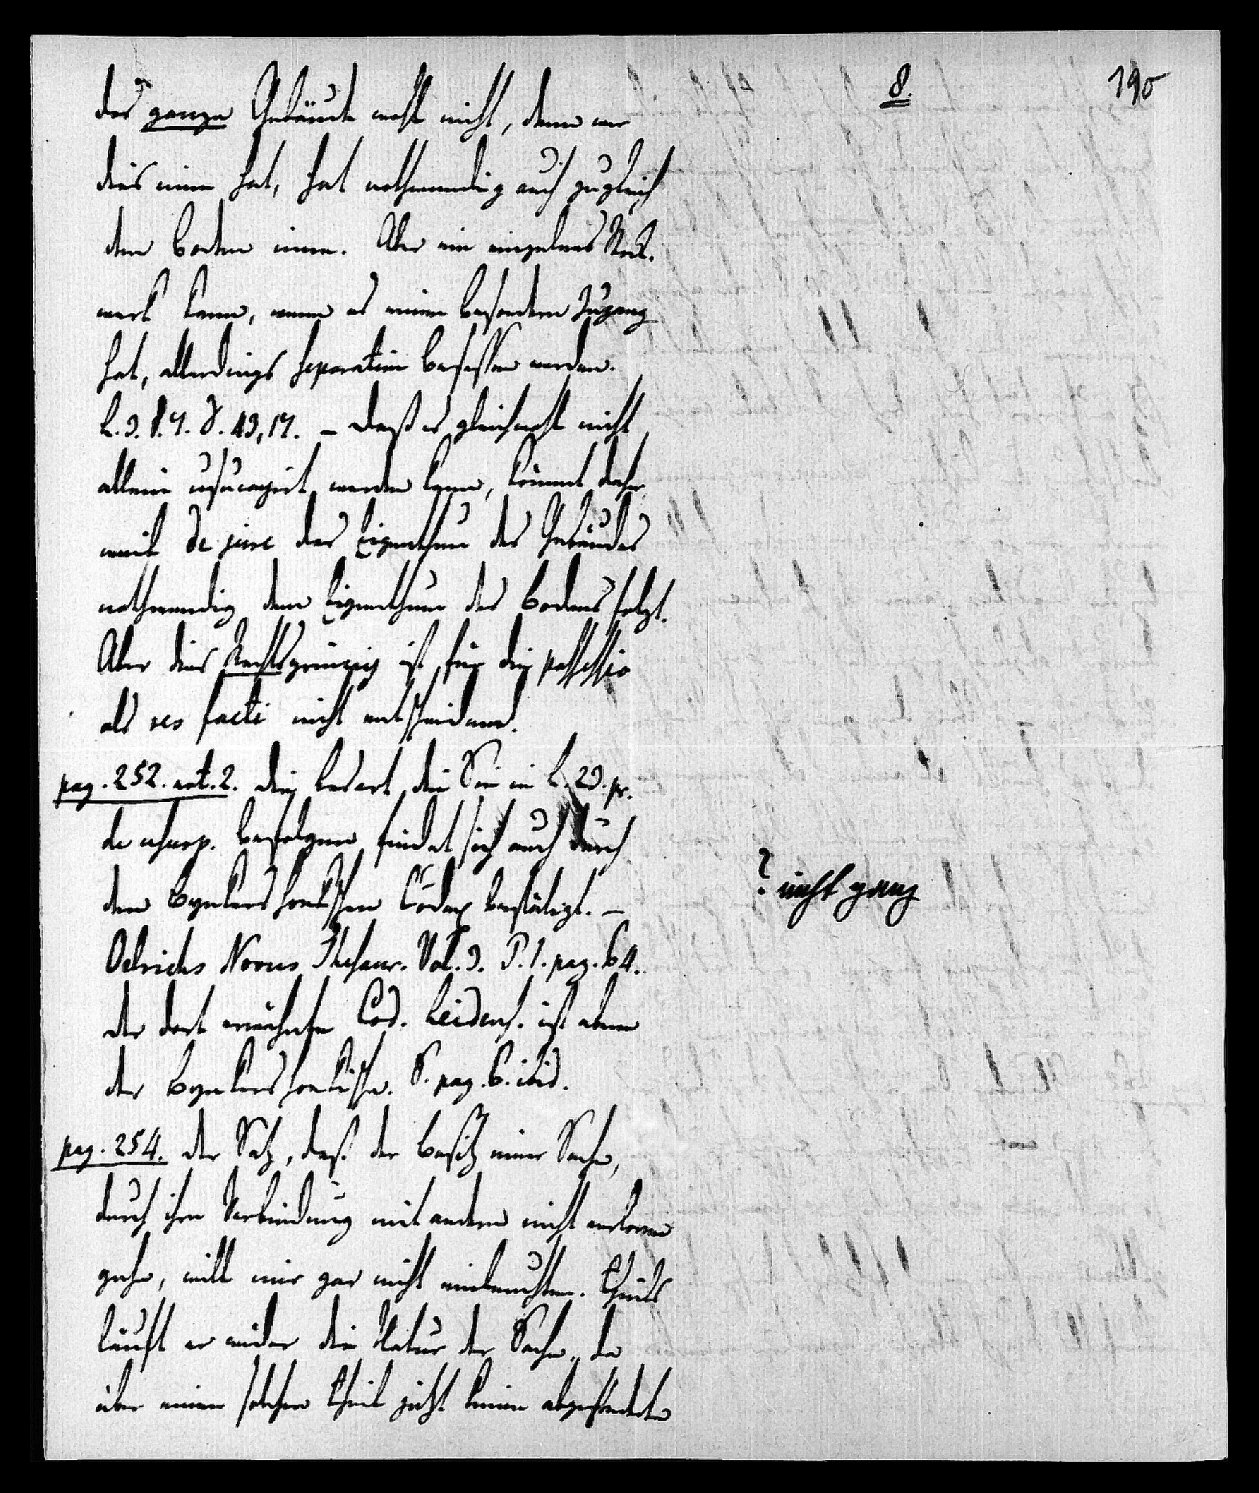 8.
190
das ganze Gebäude wohl nicht, denn wer
dies inne hat, hat nothwendig auch zugleich
den Boden inne. Aber ein einzelnes Stock-
werk kann, wenn es einen besondern Zugang
hat, allerdings separatim besessen werden.
L. 3. §. 7. D. 43, 17. – Daß es gleichwohl nicht
allein usucapirt werden kann, kömmt daher
weil de jure das Eigenthum des Gebäudes
nothwendig dem Eigenthum des Bodens folgt.
Aber dies Rechtsprinzip ist für die possessio
als res facti nicht entscheidend.
pag. 252. not. 2. die Lesart, die Sie in L. 23. pr.
de usurp. befolgen, findet sich auch durch
den Bynkershoekschen Codex bestätigt. –
Oelrichs Novus Thesaur. Vol. 3. P. 1. pag. 64.
? nicht ganz
der dort erwähnte Cod. Leidens. ist eben
der Bynkershoekische. S. pag. 6. ibid.
pag. 254. der Satz, daß der Besitz einer Sache,
durch ihre Verbindung mit andern nicht verloren
gehe, will mir gar nicht einleuchten. Theils
läuft er wider die Natur der Sache, da
über einen solchen Theil nicht keine abgesonderte